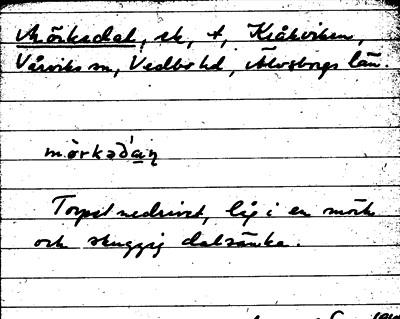 Mörkedal, sk, t, Kråkviken,
Vårviks sn, Vedbo hd, Älvsborgs län.
mörkədàn
Torpet nedrivet, låg i en mörk
och skuggig dalsänka.